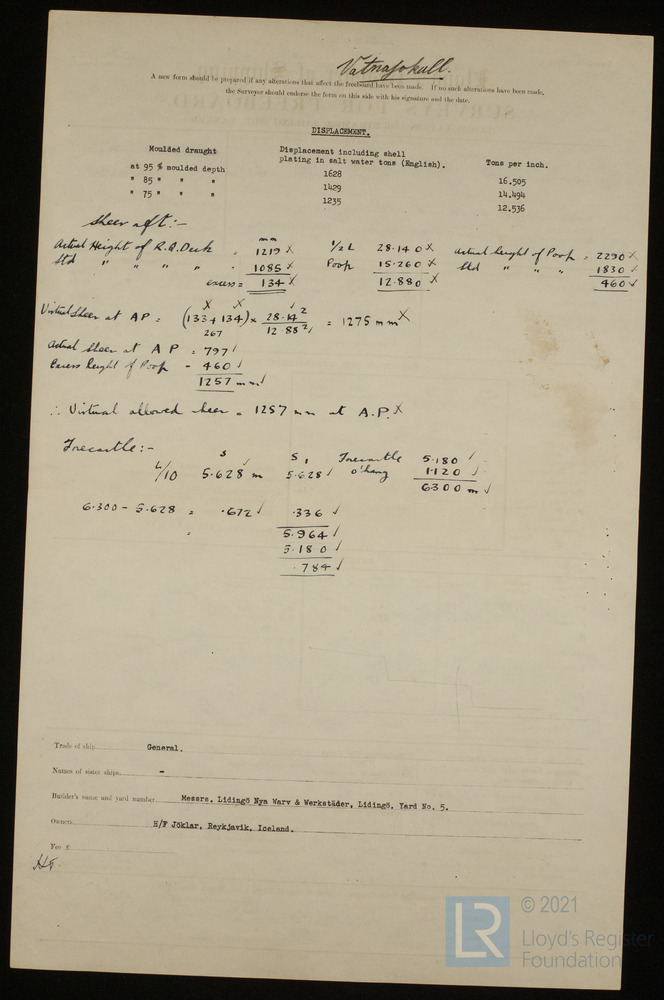 Vatnajokull.
A new form should be prepared if any alterations that affect the freeboard have been made. If no such alterations have been made,
the Surveyor should endorse the form on this side with his signature and the date.
DISPLACEMENT.
Moulded draught Displacement including shell plating in salt water tons (English). Tons per inch.
at 95 % moulded depth 1628 16.505
" 85 " " " 1429 14.494
" 75 " " " 1235 12.536
Sheer aft:-
Actual Height of R.Q.Deck = 1219 X ½ L 28.140 X Actual height of Poop = 2290 X
Std " " " " 1085 X Poop 15.260 X Std " " " 1830 √
excess = 134 X 12.880 X 460 √
Virtual Sheer at AP = (133 + 134) × 28.14² / 12.88² = 1275 mm X
267
Actual Sheer at A P = 797 √
Excess height of Poop = 460 √
1257 mm √
∴ Virtual allowed sheer = 1257 mm at A.P. X
Forecastle:-
S S1 Forecastle 5.180 √
L/10 5.628 m 5.628 √ o'hang 1.120 √
6.300 m √
6.300 - 5.628 = .672 √ .336 √
= 5.964 √
5.180 √
.784 √
Trade of ship General.
Names of sister ships -
Builder's name and yard number Messrs. Lidingö Nya Warv & Werkstäder, Lidingö, Yard No. 5.
Owners H/F Jöklar, Reykjavik, Iceland.
Fee £
LR © 2021
Lloyd's Register
Foundation